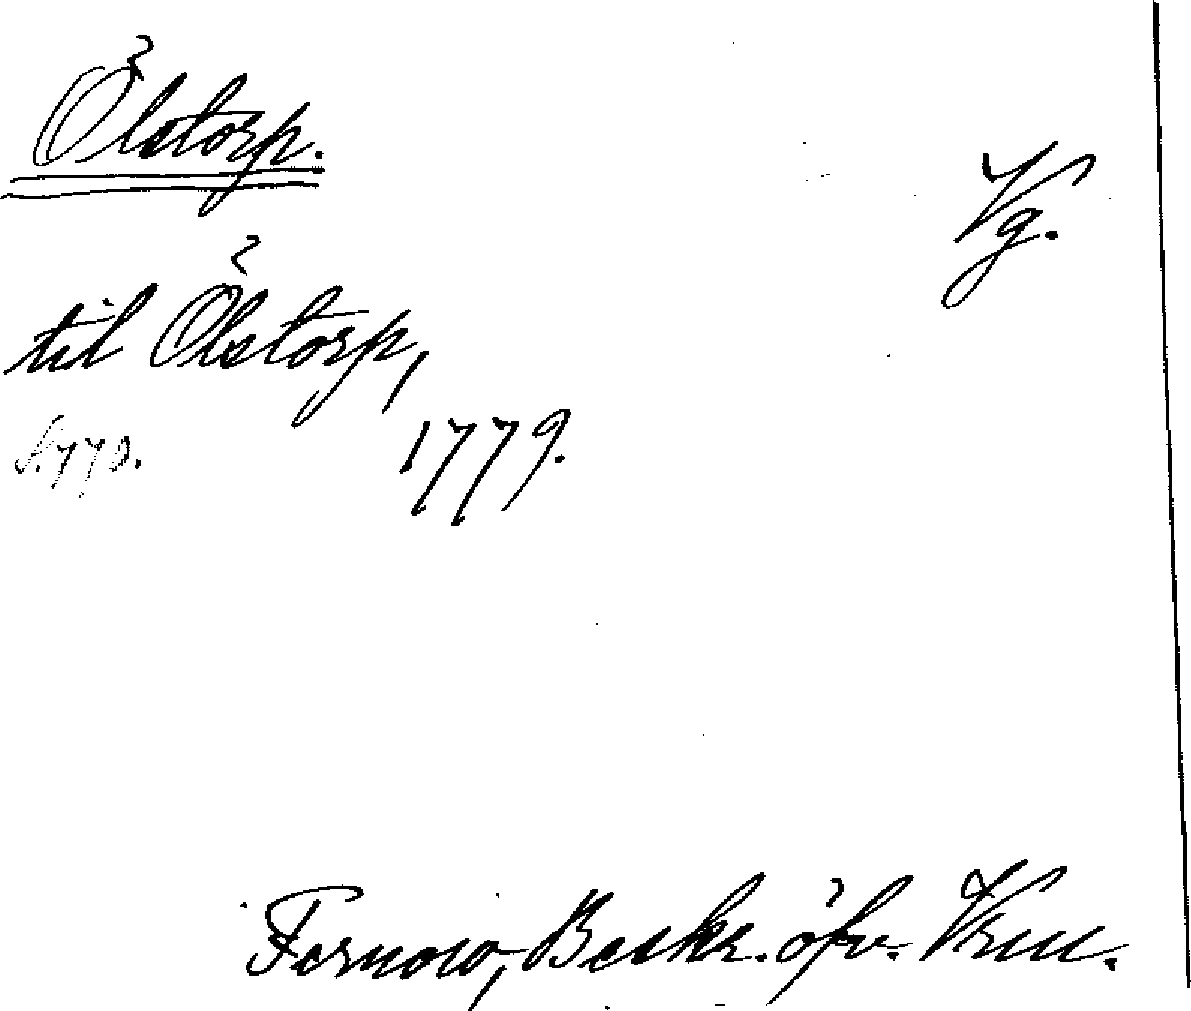 Ölstorp.
Vg.
til Ölstorp,
s. 770.
1779.
Fernow, Beskr. öfv. Vrm.